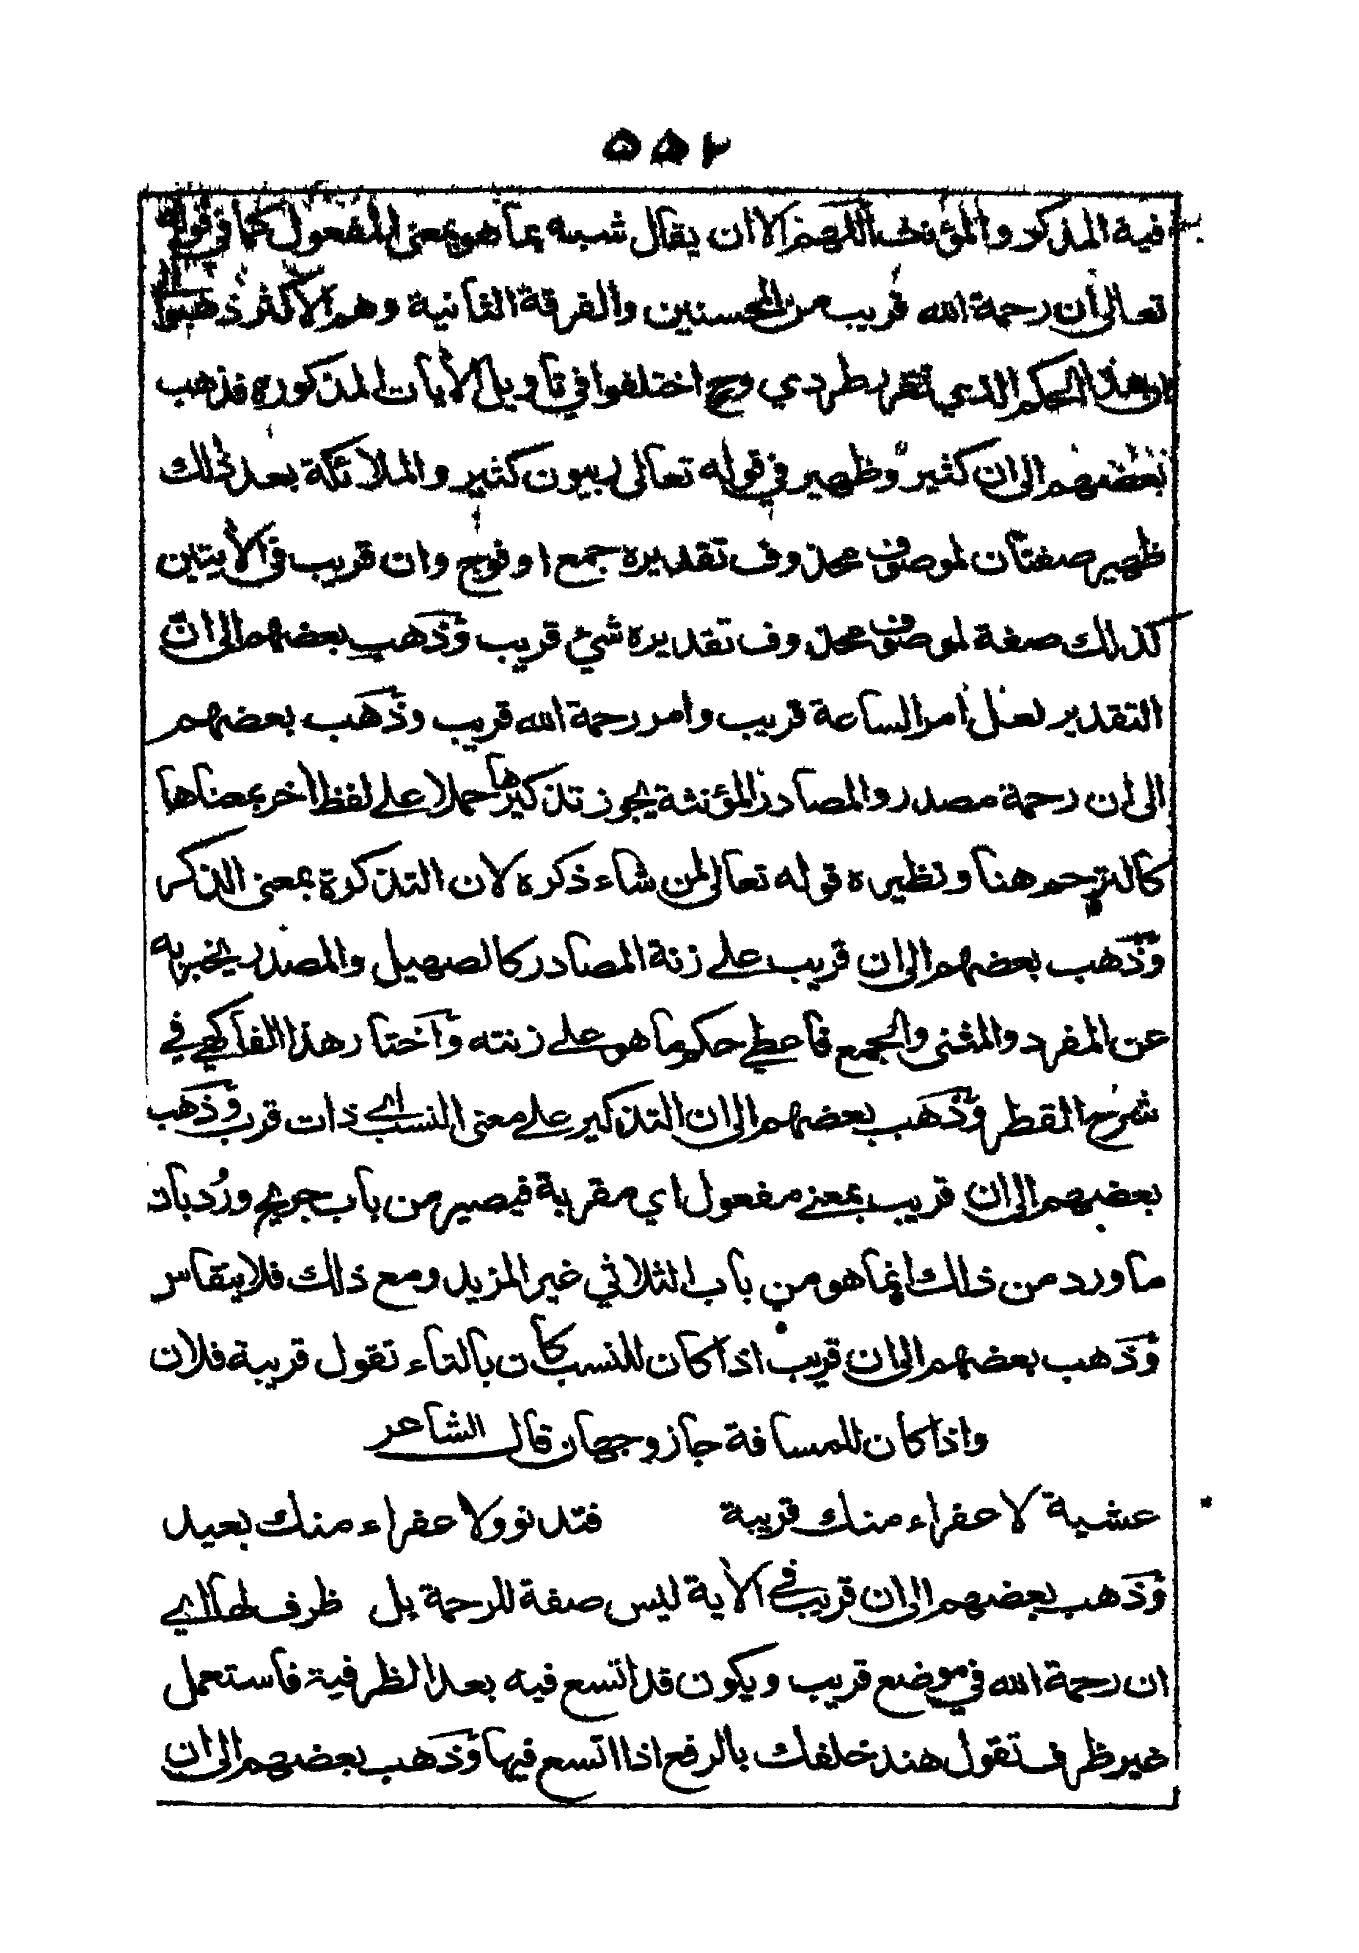 ٥٥٢
فية المذكر والمؤنث اللهم الا ان يقال شبه بما هو بمعنى المفعول كما في قوله
تعالى ان رحمة الله قريب من المحسنين والفرقة الثانية وهم الاكثر ذهبوا
هذا الحكم الذي تقرر يطرد في وح اختلفوا في تاويل الايات المذكوره فذهب
بعضهم الى ان كثير وظهير في قوله تعالى ربيون كثير والملائكة بعد ذلك
ظهير صفتان لموصوف محذوف تقديره جمع او فوج وان قريب في الايتين
كذلك صفة لموصوف محذوف تقديره شيء قريب وذهب بعضهم الى ان
التقدير لعل امر الساعة قريب وامر رحمة الله قريب وذهب بعضهم
الى ان رحمة مصدر والمصادر المؤنثة يجوز تذكيرها حملا على لفظ اخر بمعناها
كالترحم هنا ونظيره قوله تعالى لمن شاء ذكره لان التذكرة بمعنى الذكر
وذهب بعضهم الى ان قريب على زنة المصادر كالصهيل والمصدر يخبر به
عن المفرد والمثنى والجمع فاعطي حكم ما هو على زنته واختار هذا الفاكهي في
شرح القطر وذهب بعضهم الى ان التذكير على معنى النسب اي ذات قرب وذهب
بعضهم الى ان قريب بمعنى مفعول اي مقربة فيصير من باب جريح ورد بان
ما ورد من ذلك انما هو من باب الثلاثي غير المزيد ومع ذلك فلا ينقاس
وذهب بعضهم الى ان قريب اذا كان للنسب كان بالتاء تقول قريبة فلان
واذا كان للمسافة جاز وجهان قال الشاعر
عشية لا عفراء منك قريبة فتدنو ولا عفراء منك بعيد
وذهب بعضهم الى ان قريب في الاية ليس صفة للرحمة بل ظرف لها اي
ان رحمة الله في موضع قريب ويكون قد اتسع فيه بعد الظرفية فاستعمل
غير ظرف تقول هند خلفك بالرفع اذا اتسع فيها وذهب بعضهم الى ان